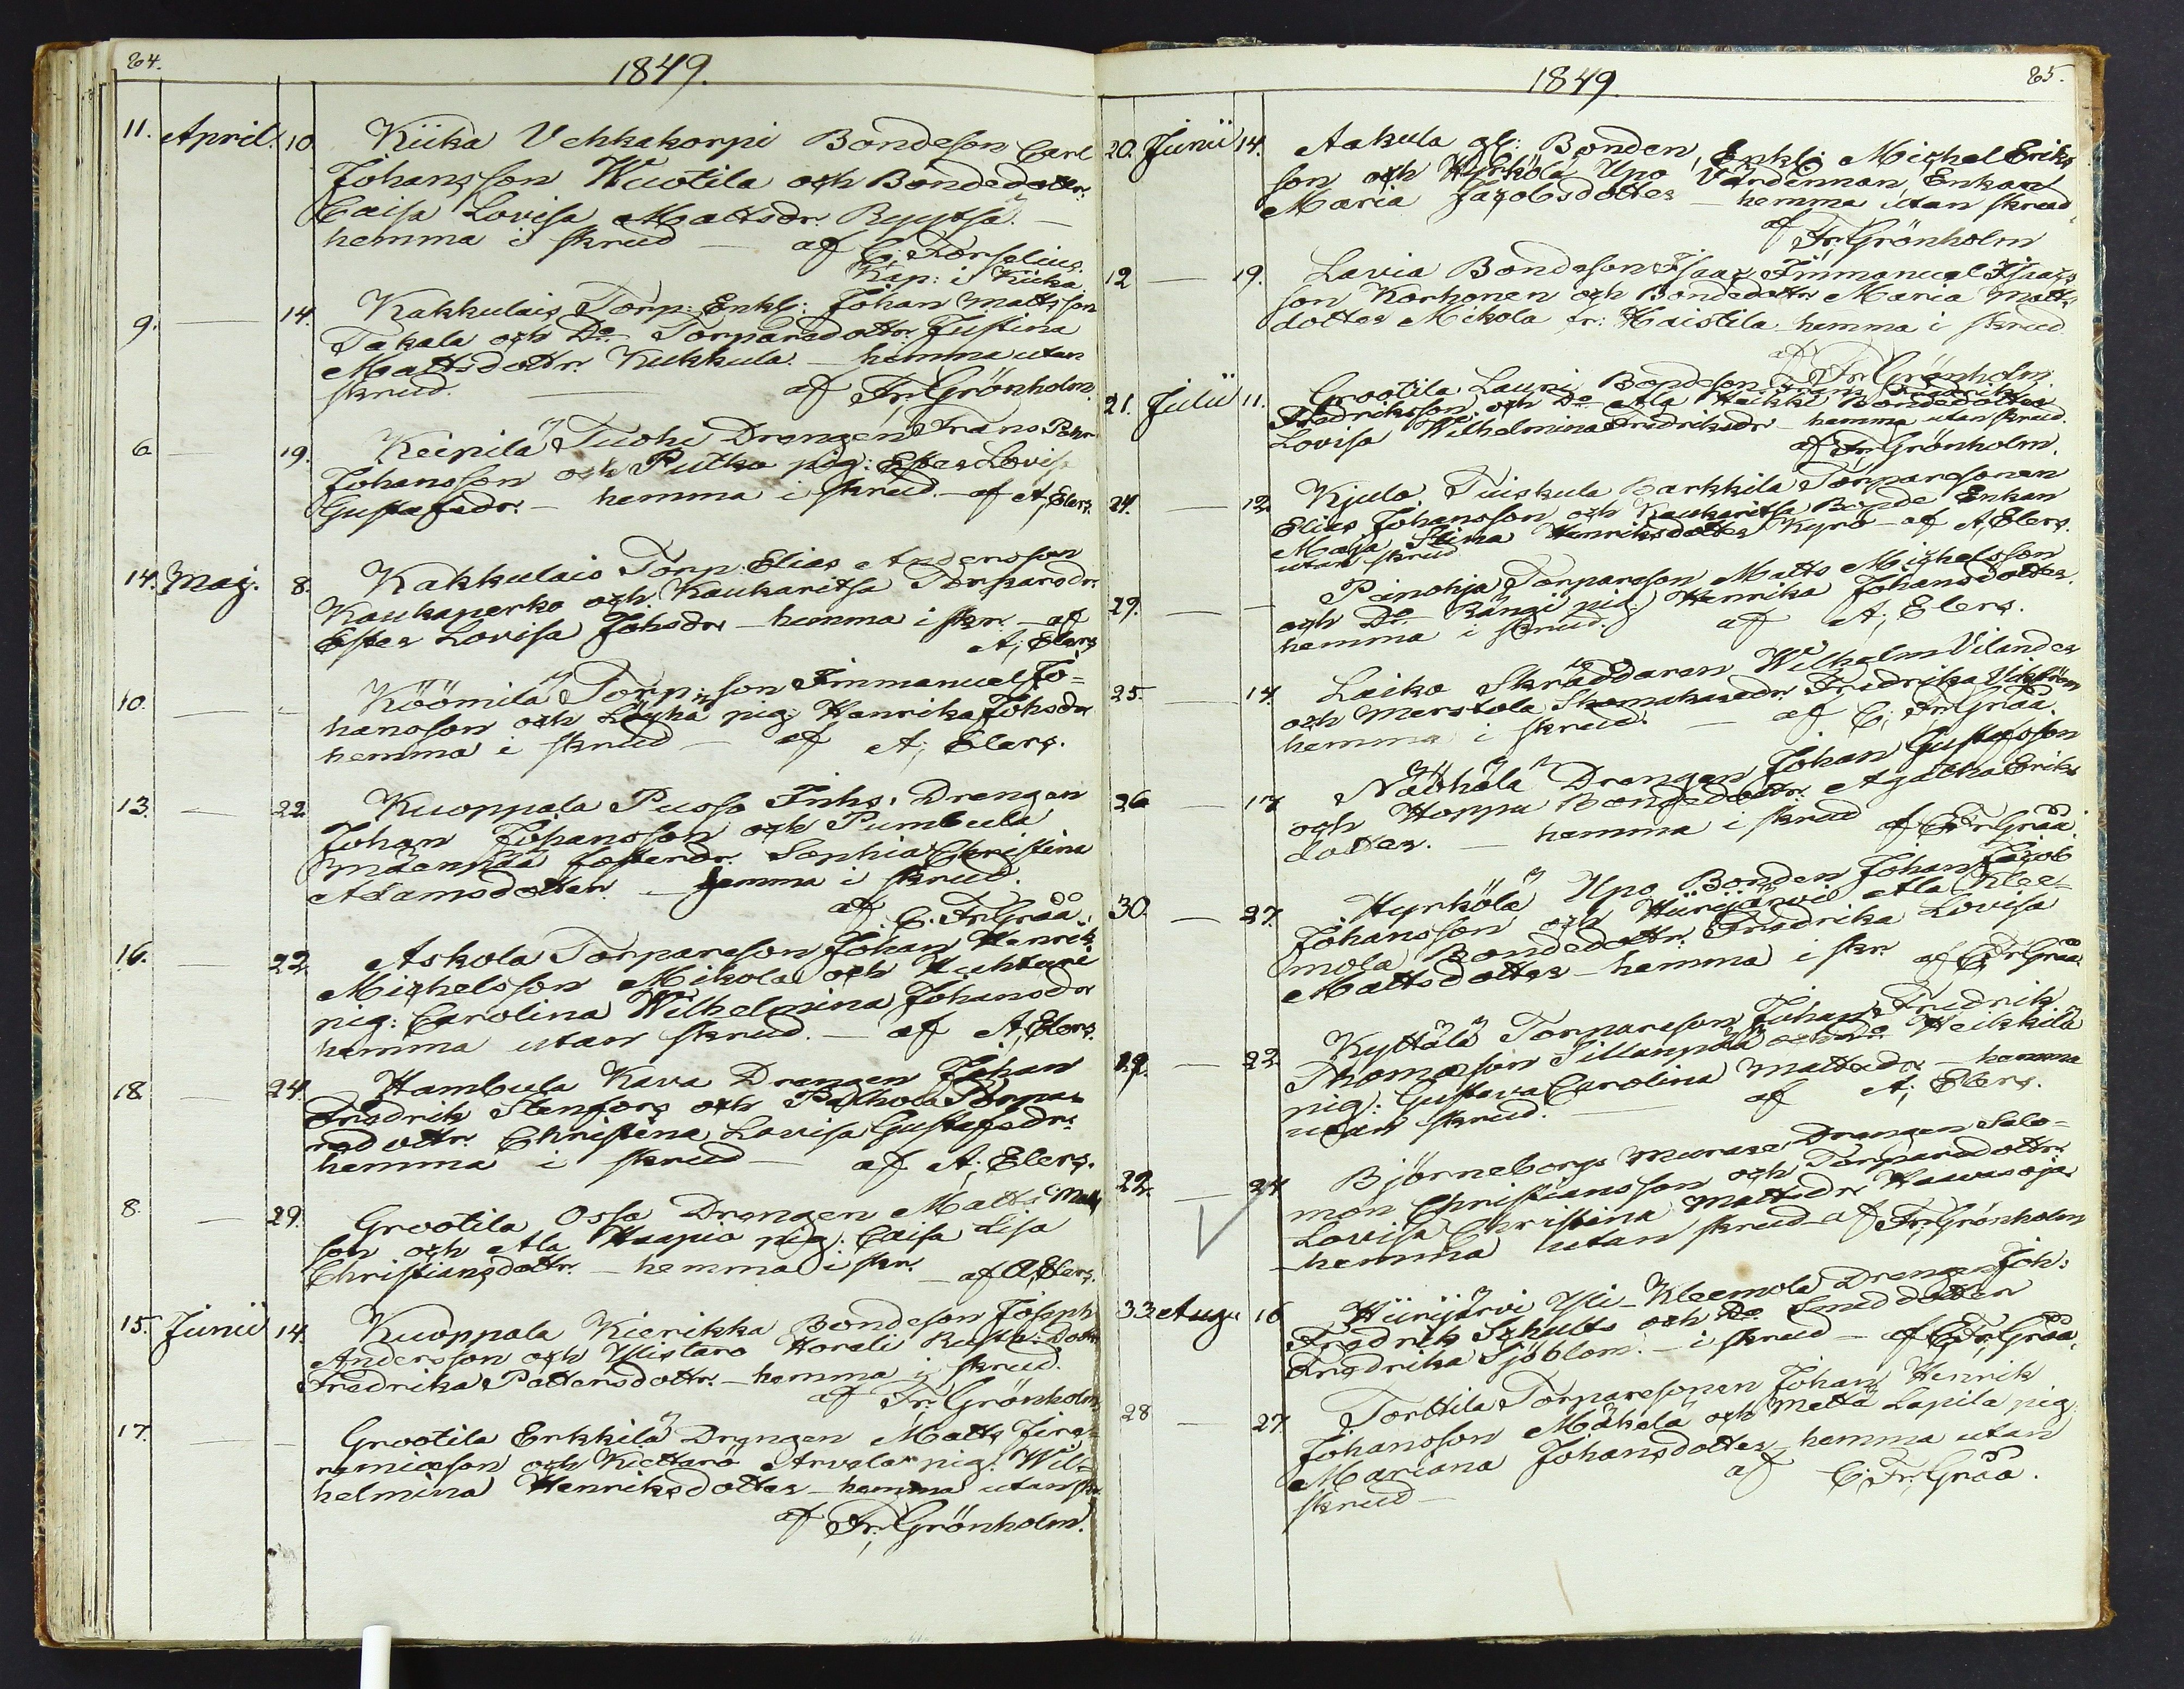 64.
1849.
11. April. 10. Kiika Vehkakorpi Bondeson Carl
Johansson Wuotila och Bondedottr.
Caisa Lovisa Mattsdr. Ryytsä. —
hemma i skrud — af C; Forselius.
Kap: i Kiika.
9. — 14. Kakkulais Torp: Enkl: Johan Mattsson
Takala och Do Torparedottr. Justina
Mattsdottr. Kukkula. — hemma utan
skrud. — af Fr; Grönholm.
6 — 19. Keipilä Tuohi Drengen Frans Pehr
Johansson och Putko pig: Ester Lovisa
Gustafsdr. — hemma i skrud. — af A; Elers.
14. Maj. 8. Kakkulais Torp. Elias Andersson
Kaukaperko och Kaukaritsa Torparedr.
Ester Lovisa Johsdr. — hemma i skr. — af
A; Elers
10. — — Köömilä Torp:son Immanuel Jo=
hansson och Löykä pig: Henrika Johsdr
hemma i skrud — af A; Elers.
13. — 22. Kuoppala Pusso Inhs: Drengen
Johan Johansson och Pumbula
Mäenpää fosterdr. Sophia Christina
Adamsdotter. — hemma i skrud.
af C. Fr: Gråå.
16. — 22. Askola Torpareson Johan Henrik
Michelsson Mikola och Huhturi
pig: Carolina Wilhelmina Johansdr
hemma utan skrud. — af A; Elers.
18 — 24 Hambula Kava Drengen Johan
Fredrik Stenfors och Palhola Torpa=
redottr. Christina Lovisa Gustafsdr.
hemma i skrud — af A; Elers.
8. — 29. Grootila Ossa Drengen Matts Matts
son och Ala Haapio pig: Caisa Lisa
Christiansdottr. — hemma i skr. — af A; Elers.
15. Junii 14. Kuoppala Kierikka Bondeson Joseph
Andersson och Ylistaro Horeli Dottr
Fredrika Pettersdottr. — hemma i skrud.
af Fr. Grönholm.
17. — — Grootila Erkkilä Drengen Matts Jere=
remiæson och Kiettarö Arvela pig. Wil=
helmina Henriksdotter — hemma utan skr.
af Fr; Grönholm.
1849.
65.
20. Junii 14. Aakula gl: Bonden, Enkl: Michel Eriks
son och Hyrköla Ypo Värdinnan Enkan
Maria Jacobsdotter — hemma utan skrud
af Fr; Grönholm
12 — 19. Lavia Bondeson Isaac Immanuel Isaacs
son Korhonen och Bondedottr Maria Matts
dotter Mikola fr: Haistila — hemma i skrud
af Fr; Grönholm
21. Julii 11. Grootila Lauri Bondeson Frans Fredrik
Fredriksson och Do Ala Heikki Bondedotter
Lovisa Wilhelmina Fredriksdr — hemma utan skrud.
af Fr; Grönholm.
24. — 12. Kjulo Tuiskula Barkkila Torparesonen
Elias Johansson och Kaukaritsa Bonde Enkan
Maja Stina Henriksdotter Kyrö — af A; Elers.
utan skrud
29. — — Peinohja Torpareson Matts Michelsson
och Do Rängi pig: Henrika Johansdotter
hemma i skrud. af A; Elers.
25. — 14. Laiko Skräddaren Wilhelm Vilander
och Merstola Skomakaredr. Fredrika Vikström
hemma i skrud. — af C; Fr; Gråå.
26 — 17 Näthälä Drengen Johan Gustafsson
och Hoppu Bondedottr. Agatha Eriks
dotter. — hemma i skrud af C; Fr; Gråå.
30. — 27. Hyrkölä Ypo Bonden Johan Jacob
Johansson och Hiirijärvi Ala Klee=
mola Bondedottr. Fredrika Lovisa
Mattsdotter — hemma i skr. af C; Fr Gråå.
27. — 22 Kyttälä Torpareson Johan Fredrik
Thomæson Sillanpää och do Heikkilä
pig: Gustava Carolina Mattsdr — hemma
utan skrud. — af A; Elers.
22. — 24 Björneborgs Murare Drengen Salo=
mon Christiansson och Torparedottr.
Lovisa Christina Mattsdr Haunoja
hemma utan skrud — af Fr; Grönholm
33 Aug. 16 Hiirijärvi Yli-Kleemola Drengen Joh:
Fredrik Schults och Do Smeddotter
Fredrika Sjöblom. — i skrud — af C; Fr; Gråå.
28 — 27 Torttila Torparesonen Johan Henrik
Johansson Mäkelä och Mattä Lapila pig.
Mariana Johansdotter — hemma utan
skrud — af C; Fr; Gråå.